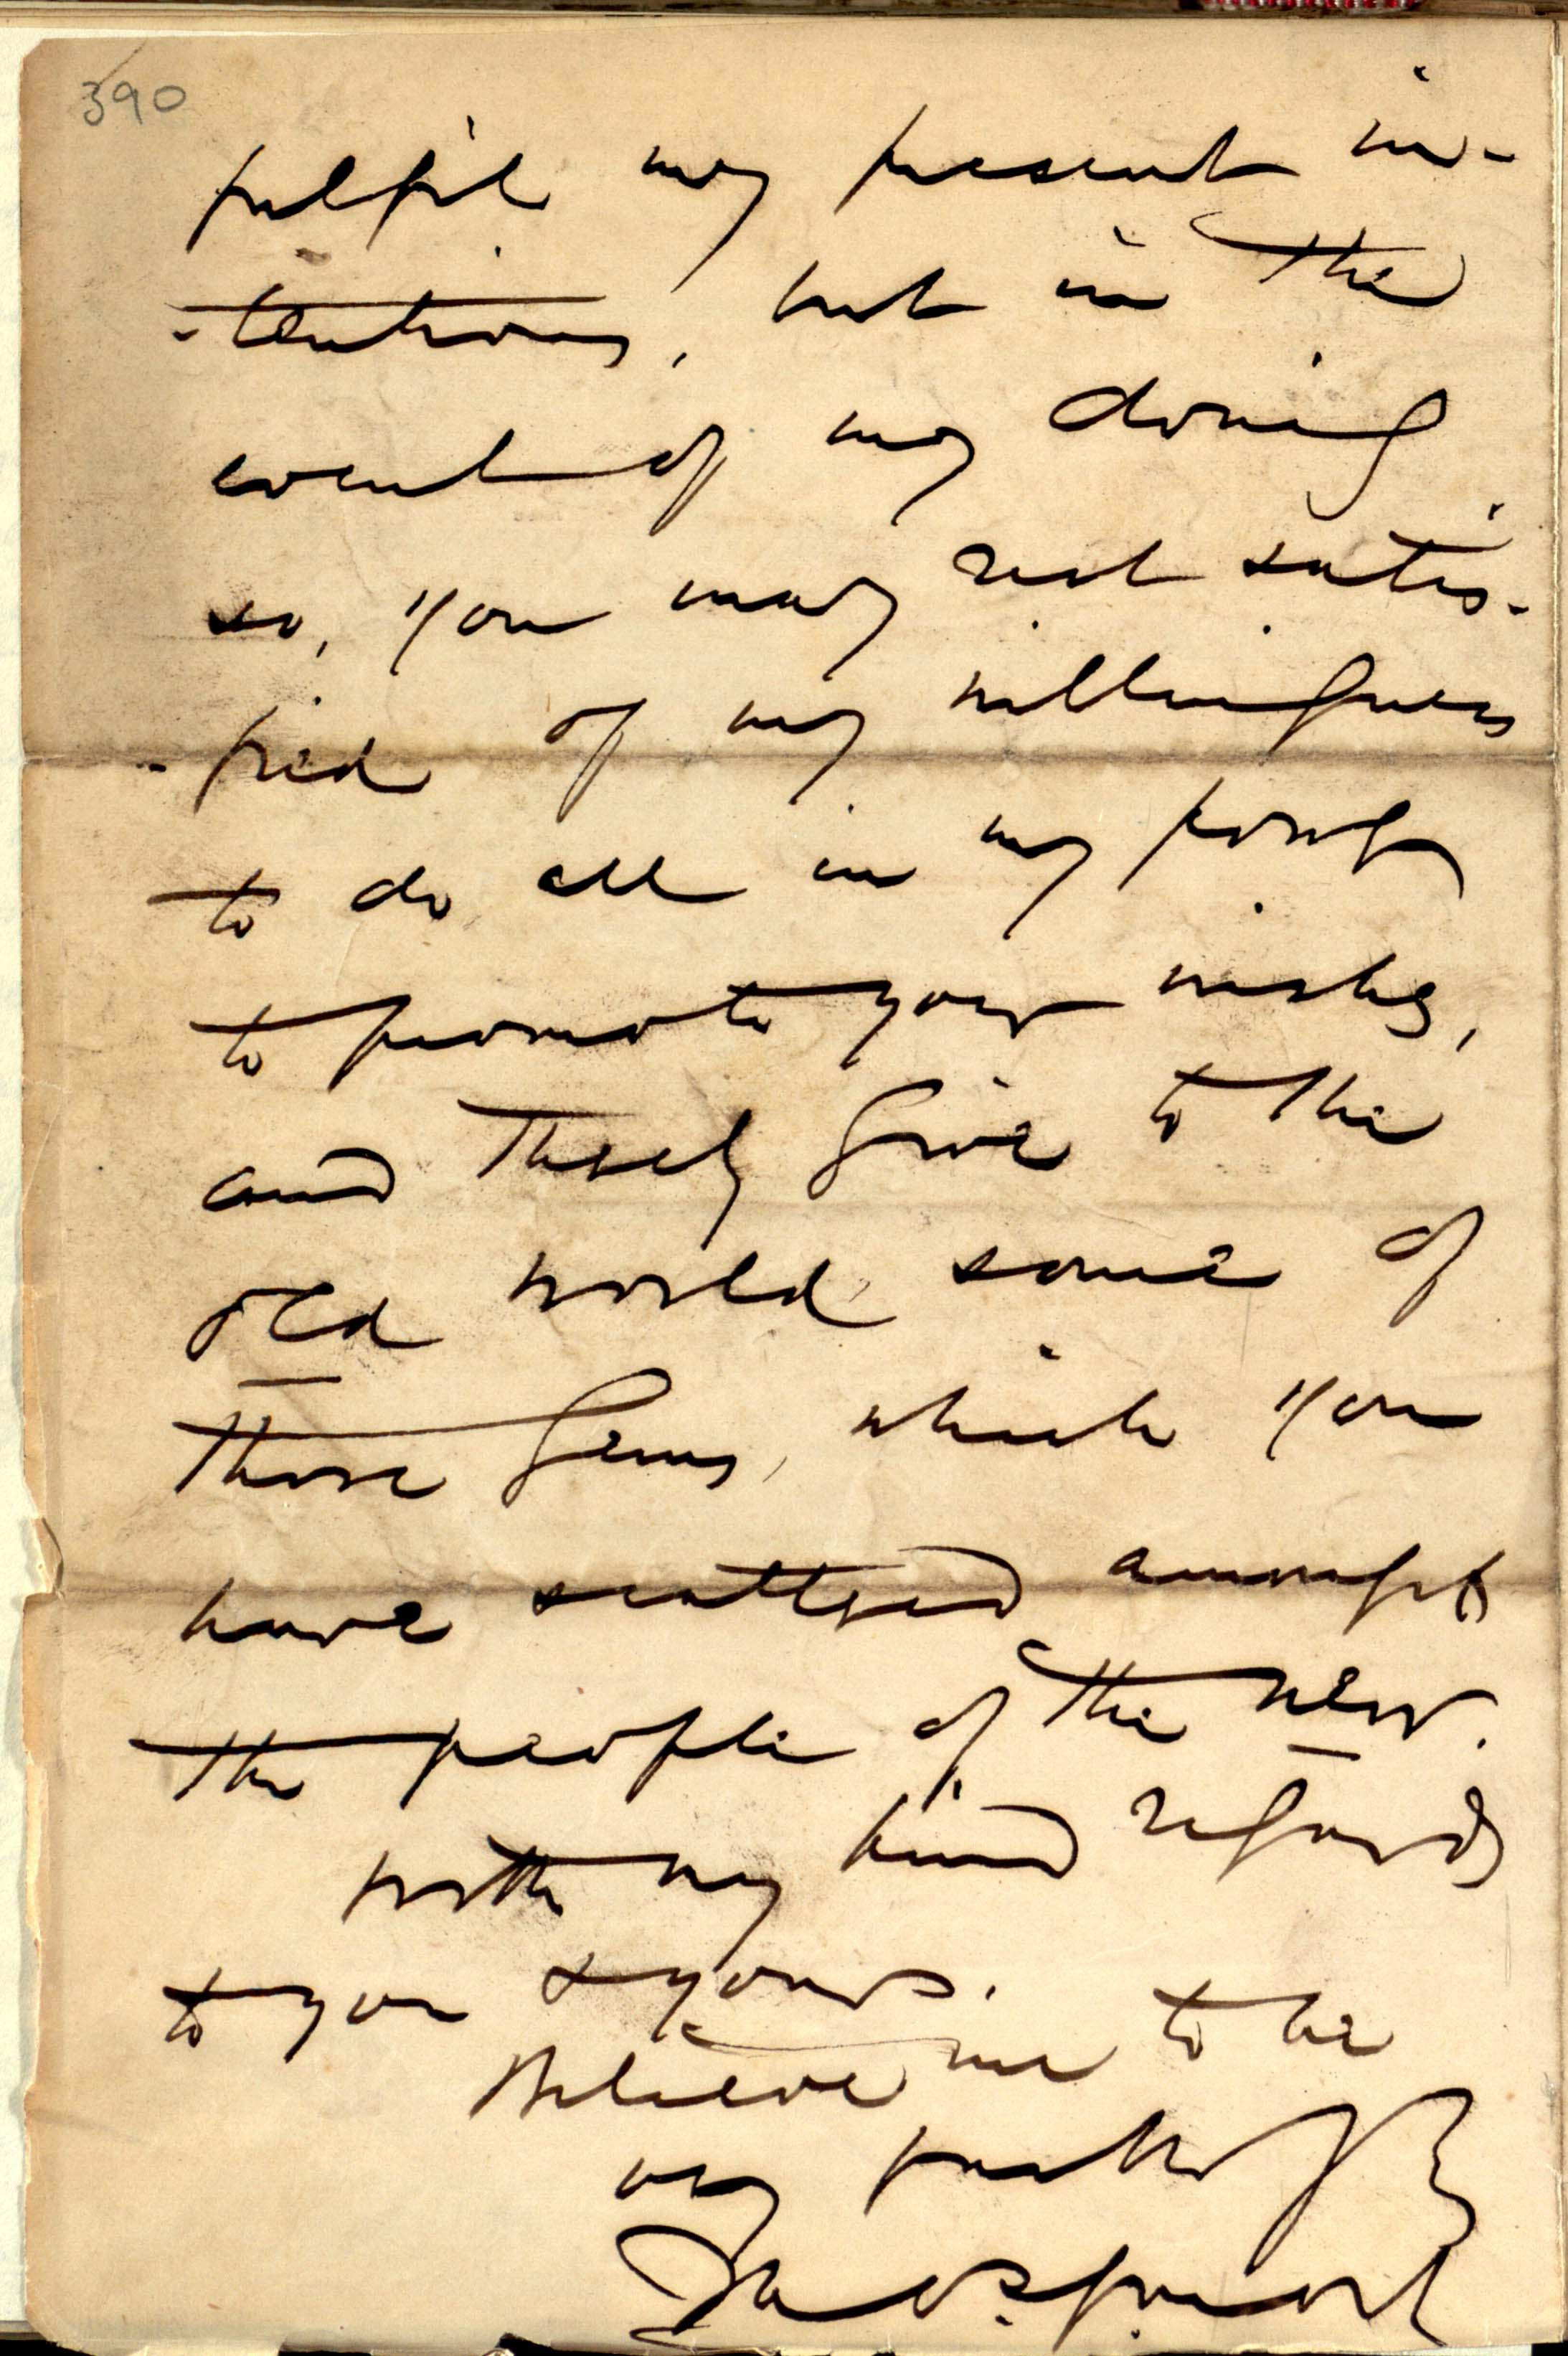 390
fulfil my present in-
-tentions, but in the
event of my doing
so, you may rest satis-
-fied of my willingness
to do all in my power
to promote your wishes,
and thereby give to the
old world some of
those Gems, which you
have scattered amongst
the people of the new.
With my kind regards
to you & yours.
Believe me to be
very faithfully